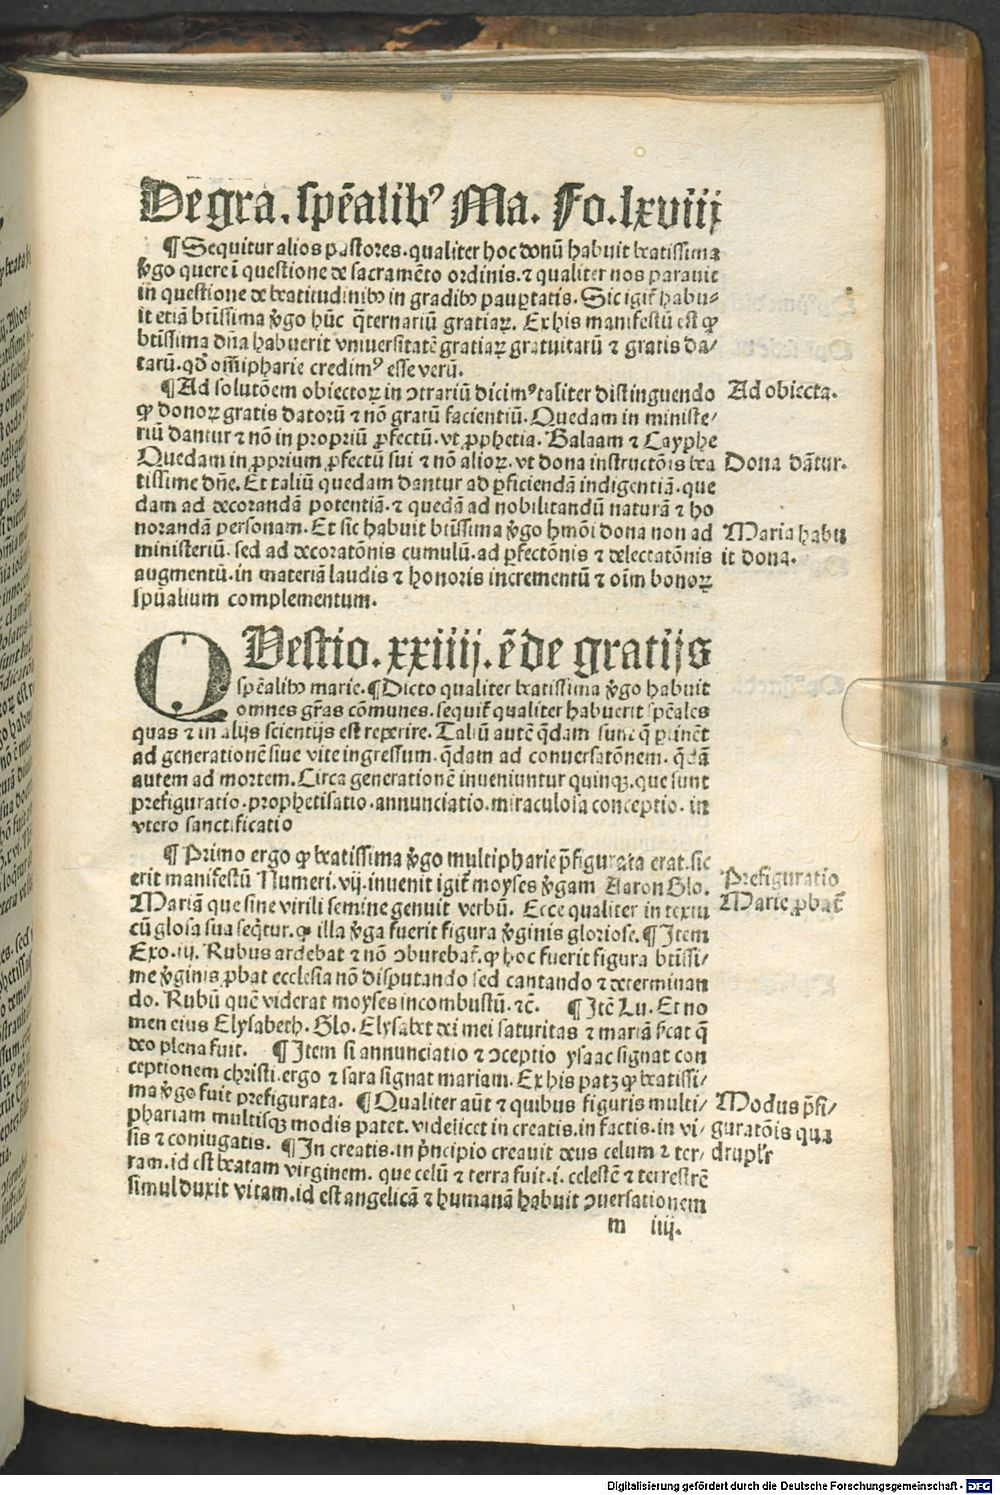 De gra. spēalibꝰ Ma. Fo. lxviij
¶ Sequitur alios pastores. qualiter hoc donū habuit beatissima
v̄go quere ī questione de sacramēto ordinis. ⁊ qualiter nos parauit
in questione de beatitudinibꝰ in gradibꝰ paupertatis. Sic igit̄ habu-
it etiā btīssima v̄go hūc q̄ternariū gratiaꝝ. Ex his manifestū est ꝙ
btīssima dn̄a habuerit vniuersitatē gratiaꝝ gratuitarū ⁊ gratis da/
tarū. qđ om̄ipharie credimꝰ esse verū.
¶ Ad solutōem obiectoꝝ in ↄtrariū dicimꝰ taliter distinguendo
ꝙ donoꝝ gratis datorū ⁊ nō gratū facientiū. Quedam in ministe-
riū dantur ⁊ nō in propriū ꝓfectū. vt ꝓphetia. Balaam ⁊ Cayphe
Quedam in ꝓprium ꝓfectū sui ⁊ nō alioꝝ. vt dona instructōis bea
tissime dn̄e. Et taliū quedam dantur ad ꝑficiendā indigentiā. que
dam ad decorandā potentiā. ⁊ quedā ad nobilitandū naturā ⁊ ho
norandā personam. Et sic habuit btīssima v̄go hmōi dona non ad
ministeriū. sed ad decoratōnis cumulū. ad ꝑfectōnis ⁊ delectatōnis
augmentū. in materiā laudis ⁊ honoris incrementū ⁊ oīm bonoꝝ
spūalium complementum.
Ad obiecta.
Dona dātur.
Maria habu
it dona.
QVestio. xxiiij. ē de gratijs
spēalibꝰ marie. ¶ Dicto qualiter beatissima v̄go habuit
omnes grās cōmunes. sequit̄ qualiter habuerit spēales
quas ⁊ in alijs scientijs est reperire. Taliū autē q̄dam sunt q̄ ꝑtinēt
ad generationē siue vite ingressum. q̄dam ad conuersatōnem. q̄dā
autem ad mortem. Circa generationē inueniuntur quinqꝫ. que sunt
prefiguratio. prophetisatio. annunciatio. miraculosa conceptio. in
vtero sanctificatio
¶ Primo ergo ꝙ beatissima v̄go multipharie p̄figurata erat. sic
erit manifestū Numeri. vij. inuenit igit̄ moyses v̄gam Aaron Glo.
Mariā que sine virili semine genuit verbū. Ecce qualiter in textu
cū glosa sua seq̄tur. ꝙ illa v̄ga fuerit figura v̄ginis gloriose. ¶ Item
Exo. iij. Rubus ardebat ⁊ nō ↄburebat̄. ꝙ hoc fuerit figura btīssi/
me v̄ginis ꝓbat ecclesia nō disputando sed cantando ⁊ determinan
do. Rubū quē viderat moyses incombustū. ⁊c̄. ¶ Itē Lu. Et no
men eius Elysabeth. Glo. Elysabet dei mei saturitas ⁊ mariā s̄cat q̄
deo plena fuit. ¶ Item si annunciatio ⁊ ↄceptio ysaac signat con
ceptionem christi. ergo ⁊ sara signat mariam. Ex his patꝫ ꝙ beatissi/
ma v̄go fuit prefigurata. ¶ Qualiter aūt ⁊ quibus figuris multi/
phariam multisqꝫ modis patet. videlicet in creatis. in factis. in vi/
sis ⁊ coniugatis. ¶ In creatis. in p̄ncipio creauit deus celum ⁊ ter/
ram. id est beatam virginem. que celū ⁊ terra fuit. i. celestē ⁊ terrestrē
simul duxit vitam. id est angelicā ⁊ humanā habuit ↄuersationem
Prefiguratio
Marie ꝓbat̄
Modus p̄fi/
guratōis qua
drupl'r
m iiij.
Digitalisierung gefördert durch die Deutsche Forschungsgemeinschaft - DFG